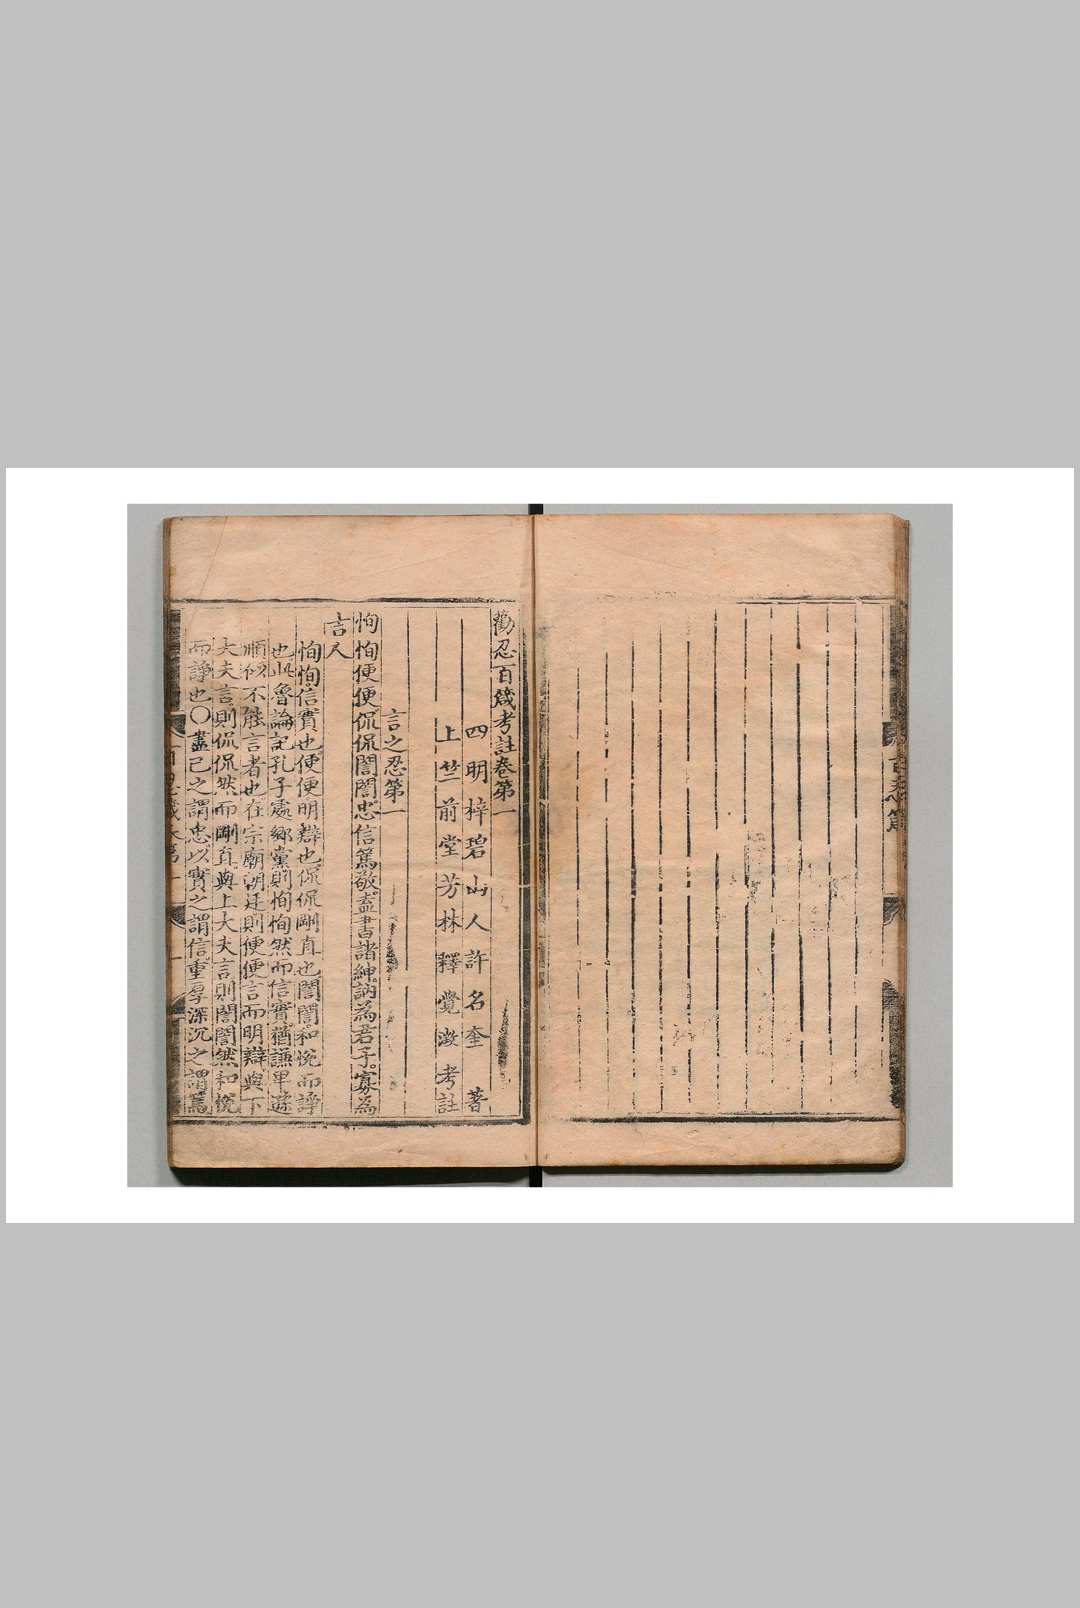 勸忍百箴考註卷第一
四明梓碧山人許名奎 著
上竺前堂芳林釋覺澂考註
言之忍第一
恂恂便便侃侃誾誾忠信篤敬盍書諸紳訥為君子寡為
言人
恂恂信實也便便明辯也侃侃剛直也誾誾和悅而諍
也此魯論記孔子處鄉黨則恂恂然而信實猶謙卑遜
順似不能言者也在宗廟朝廷則便便言而明辯與下
大夫言則侃侃然而剛直與上大夫言則誾誾然和悅
而諍也〇盡己之謂忠以實之謂信重厚深沉之謂篤